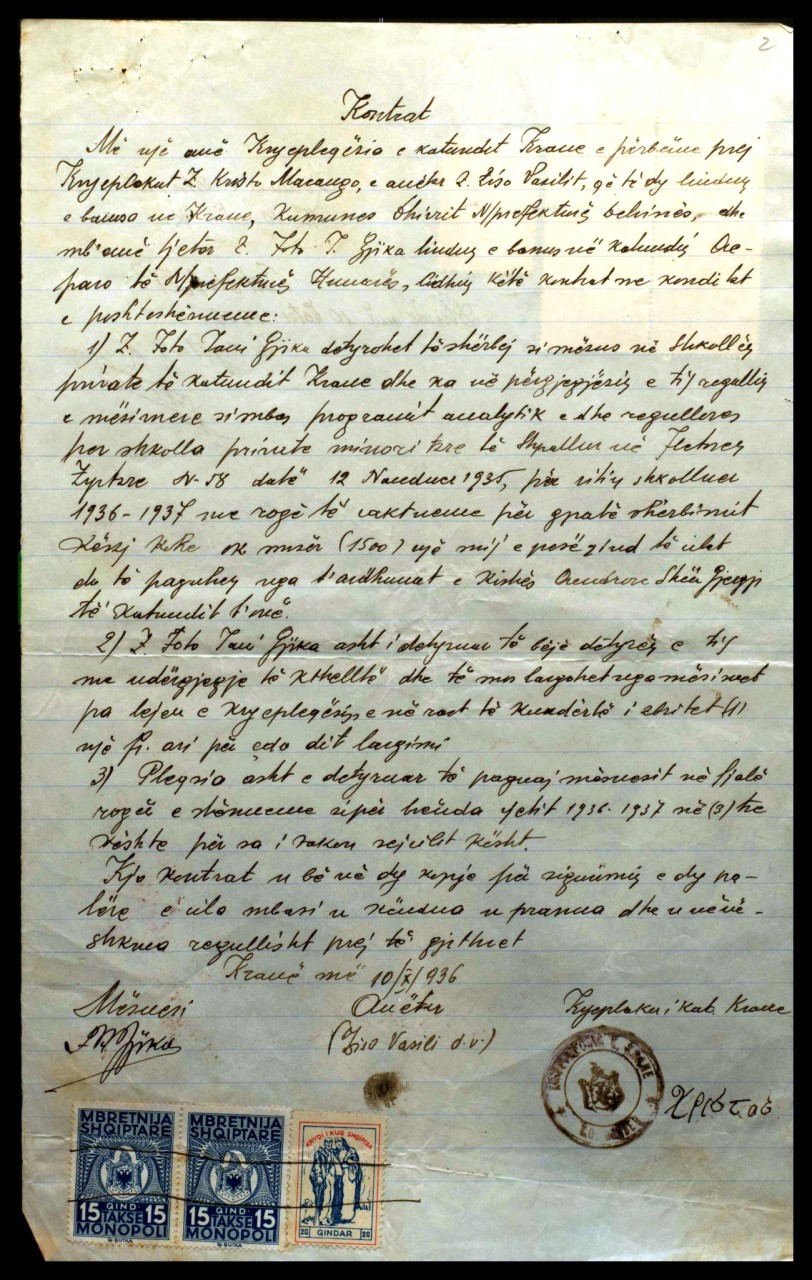 2
Kontrat
Më një anë Kryeplegësia e katundit Krane e përbëme prej
Kryeplakut Z. Kristo Macango, e anëtar Z. Ziso Vasilit, që të dy lindun
e banusa në Krane, Komunes N/prefekturë Delvinës, dhe
mb'anë tjetër Z. Foto J. Gjika lindun e banus në katundin Qe-
paro të N/prefekturës Himarës, lidhin këtë kontrat me kondi tat
e poshtëshënueme:
1) Z. Foto Jani Gjika detyrohet të shërbej si mësus në Shkollën
private të katundit Krane dhe ka në përgjegjësin e tij regullin
e mësimeve simbas programit analytik e dhe regullores
per shkolla private minoritare të Shpallur në Fletren
Zyrtare Nr. 58 datë 12 Nanduer 1935, për vitin shkolluer
1936-1937 me rogë të caktueme për gjatë shërbimit
kësaj kohe ok misër (1500) një mij e pesë qind të cilat
do të paguhen nga t'ardhunat e Kishës Shën Gjergji
të katundit t'onë.
2) Z. Foto Jani Gjika asht i detyruar të bëjë detyrën e tij
me ndërgjegje të kthelltë dhe të mos largohet nga mësimet
pa lejen e Kryeplegësis e në rast të kundërtë i zbritet (1)
një fr. ari për çdo dit largimi
3) Plegsia asht e detyruar të paguaj mësuesit në fjalë
rogën e shënueme sipër brënda vjetit 1936-1937 në (3) tre
këste për sa i takon sejcilit këst.
Kjo kontrat u bë në dy kopje për sigurimin e dy pa-
lëve e cila mbasi u këndua u pranua dhe u nënë-
shkrua regullisht prej të gjithvet
Kranë më 10/X/936
Mësuesi Anëtar Kryeplaku i kat. Krane
Gjika (Ziso Vasili d.v.)
Χρίστος
MBRETNIJA SHQIPTARE
15 QIND 15
TAKSE
MONOPOLI
G. BUTKA
MBRETNIJA SHQIPTARE
15 QIND 15
TAKSE
MONOPOLI
G. BUTKA
KRYQI I KUQ SHQIPTAR
20 QINDAR 20